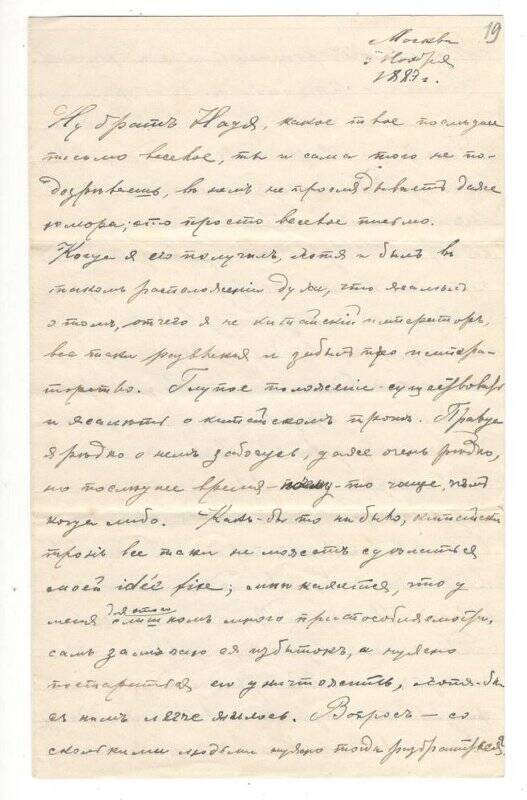 19
Москва
Ноября
1887 г.
Ну братъ Надя, какое твое последнее
письмо веселое, ты и сама того не по-
дозрѣваешь, въ немъ не проглядываетъ даже
юмора; это просто веселое письмо.
Когда я его получилъ, хотя и былъ въ
такомъ расположеніи духа, что
о томъ, отчего я не китайскій императоръ,
все таки развлекся и забылъ про импера-
торство. Глупое положеніе - существовать
и о китайскомъ тронѣ. Правда
я рѣдко о немъ забочусь, даже очень рѣдко,
но последнее время - -то чаще, чѣмъ
когда либо. Какъ-бы то ни было, китайскій
тронъ все таки не можетъ сдѣлаться
моей idée fixe; мнѣ кажется, что у
меня для этого слишкомъ много приспособляемости,
самъ замѣчаю ея избытокъ, и нужно
постараться его уничтожить, хотя-бы
съ нимъ легче жилось. Вопросъ - со
сколькими людьми нужно тогда